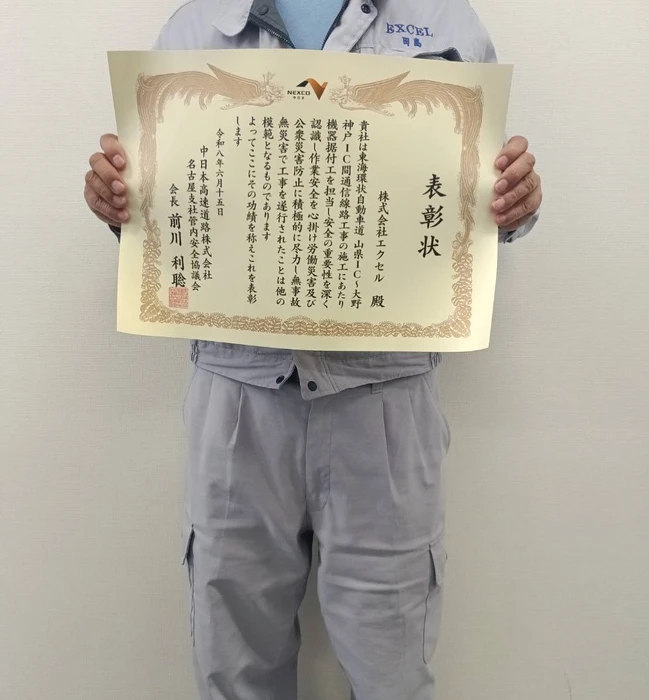 EXCEL
田島
NEXCO
中日本
表彰状
株式会社エクセル 殿
貴社は東海環状自動車道 山県IC～大野
神戸IC間通信線路工事の施工にあたり
機器据付工を担当し安全の重要性を深く
認識し作業安全を心掛け労働災害及び
公衆災害防止に積極的に尽力し無事故
無災害で工事を遂行されたことは他の
模範となるものであります
よってここにその功績を称えこれを表彰
します
令和八年六月十五日
中日本高速道路株式会社
名古屋支社管内安全協議会
会長 前川 利聡